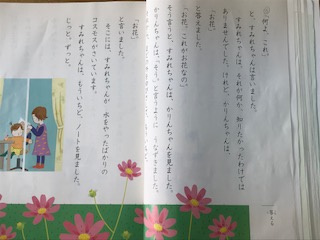 ⑫「何よ、これ。」
と、すみれちゃんは言いました。
すみれちゃんは、それが何か、知りたかったわけでは
ありませんでした。けれど、かりんちゃんは、
「お花。」
と答えました。
「お花。これがお花なの。」
そう言うと、すみれちゃんは、かりんちゃんを見ました。
かりんちゃんは、「そう。」と言うように、うなずきました。
「お花。」
と言いました。
そこには、すみれちゃんが水をやったばかりの
コスモスがさいています。
すみれちゃんは、もういちど、ノートを見ました。
じっと。ずっと。